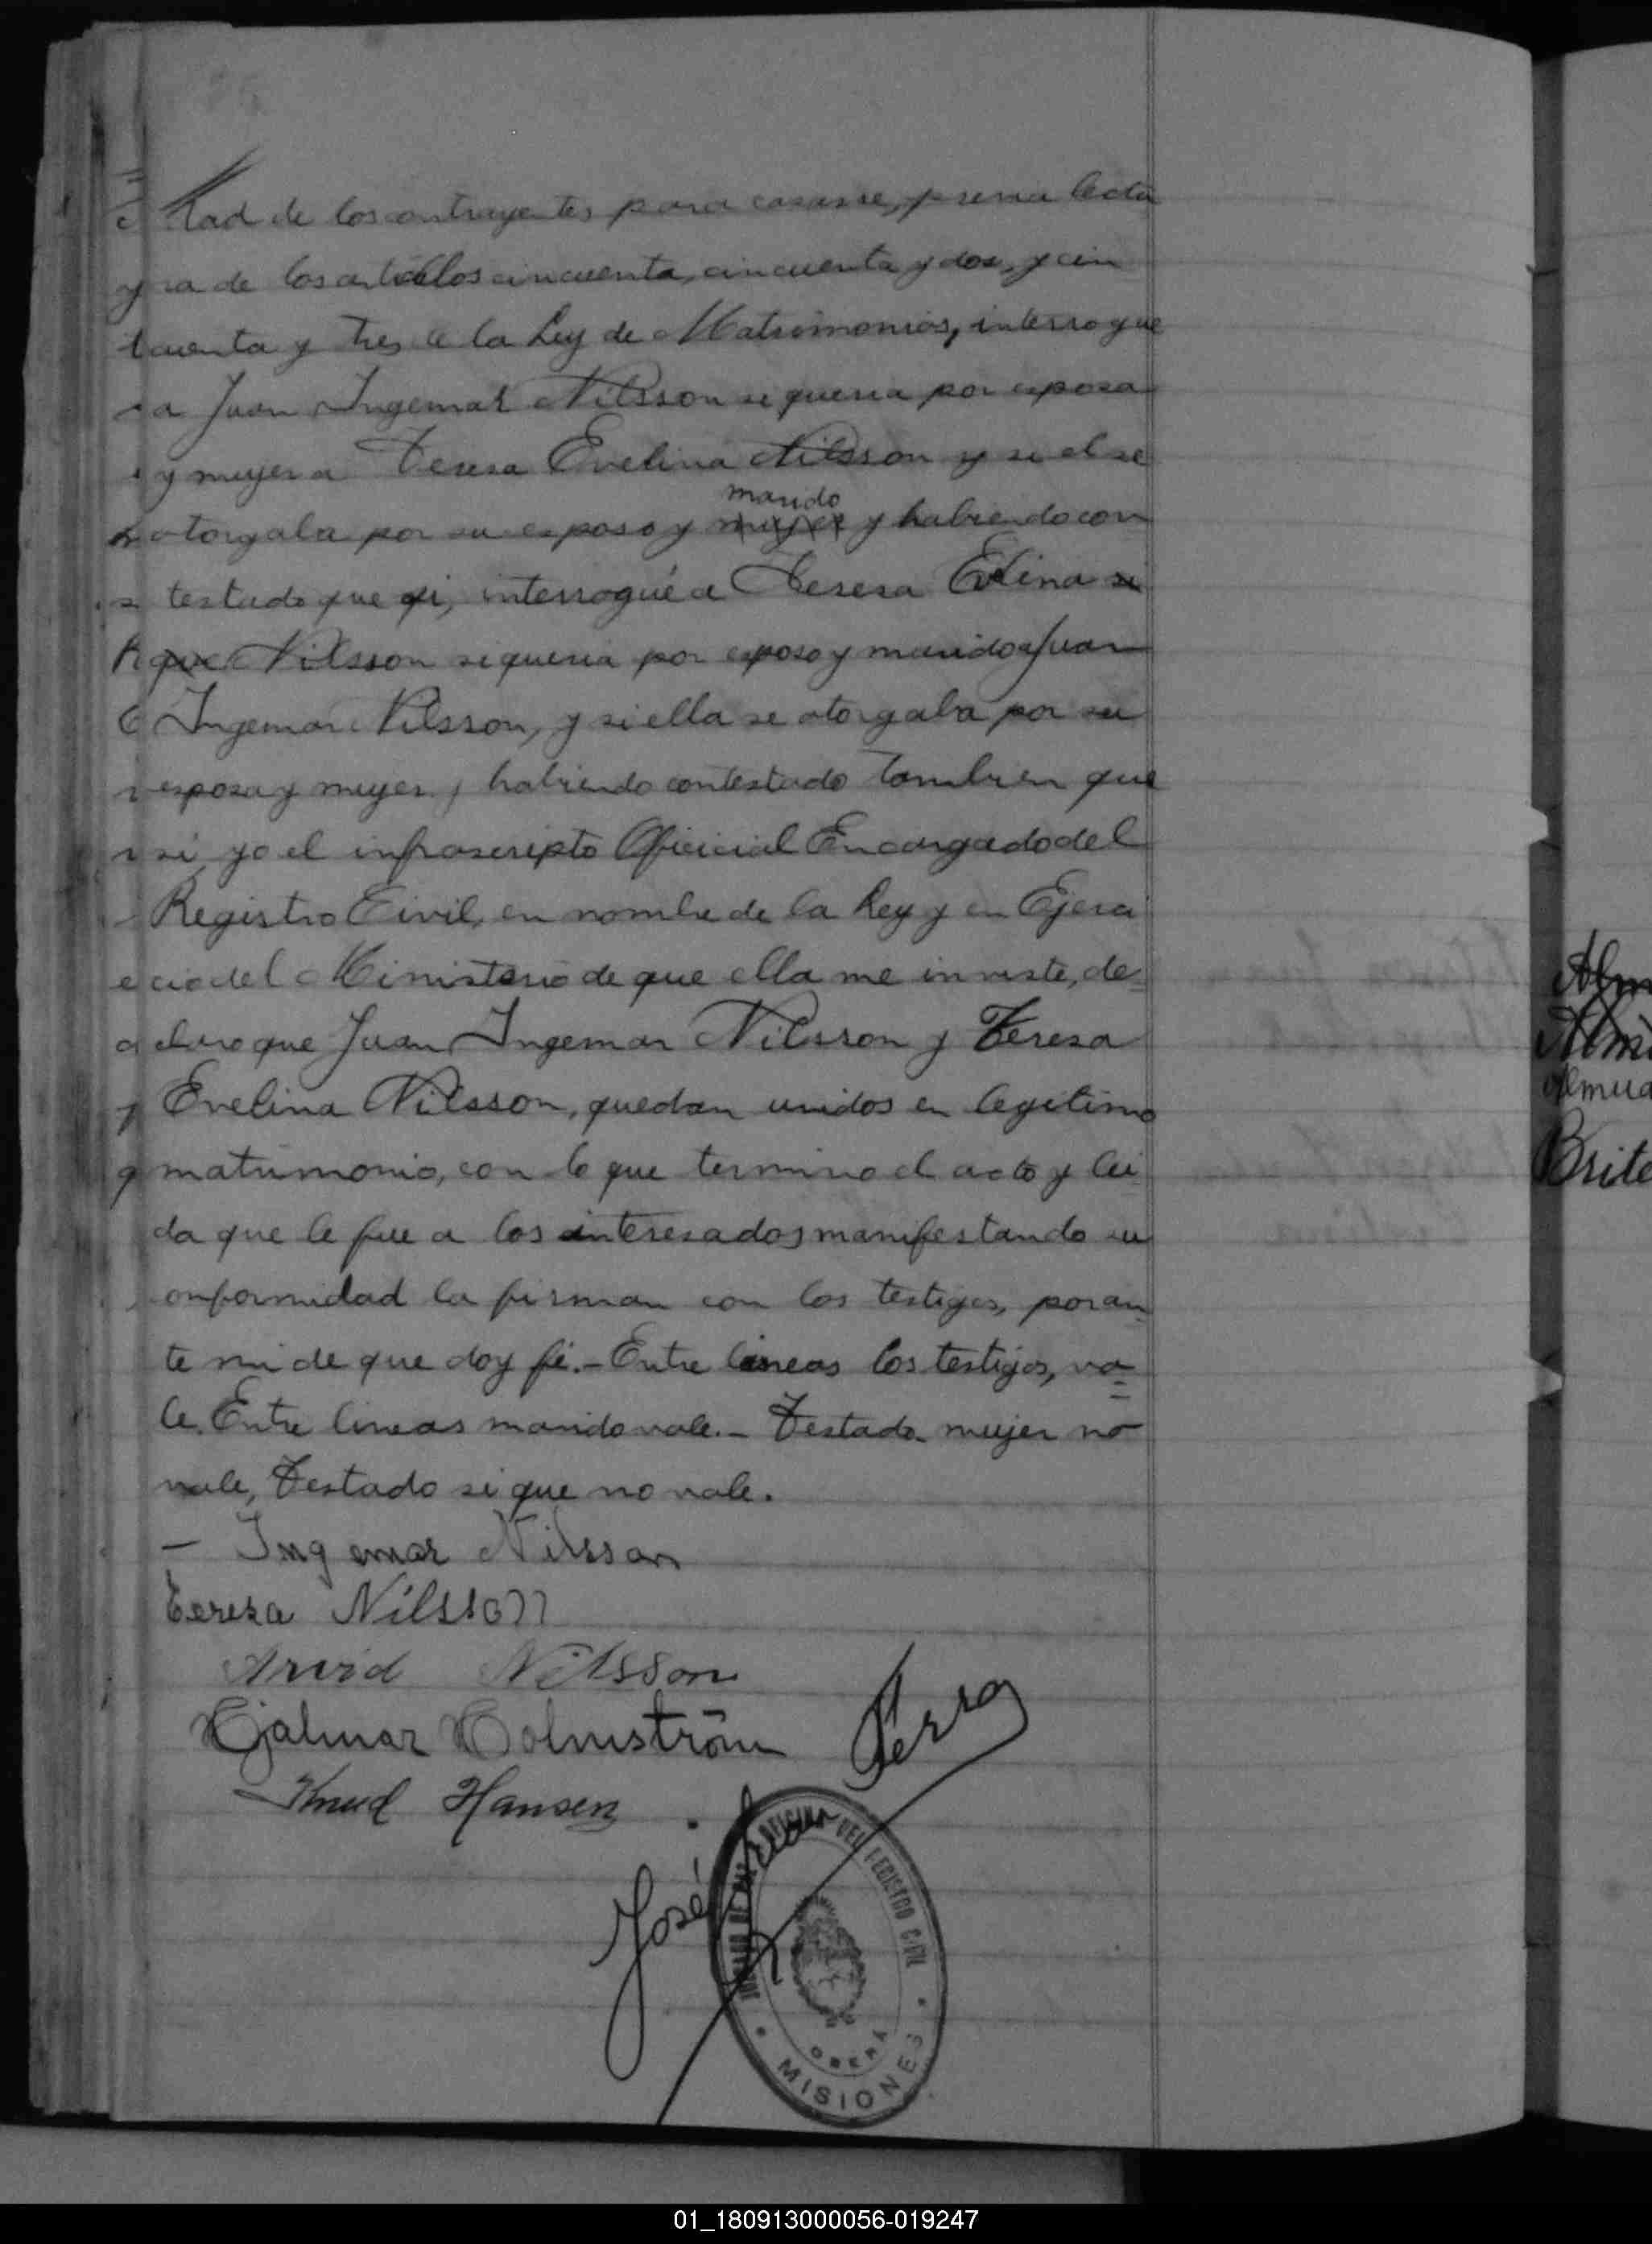 tad de los contrayentes para casarse, previa lectu
ra de los articulos cincuenta, cincuenta y dos, y cin
cuenta y tres de la Ley de Matrimonios, interrogue
a Juan Ingemar Nilsson si queria por esposa
y mujer a Teresa Evelina Nilsson y si el se
marido
otorgaba por su esposo y mujer y habiendo con
testado que si, interrogué a Teresa Evelina si
que Nilsson si queria por esposo y marido a Juan
Ingemar Nilsson, y si ella se otorgaba por su
esposa y mujer, habiendo contestado tambien que
si, yo el infrascripto Oficial Encargado del
Registro Civil, en nombre de la Ley y en Ejerci
cio del Ministerio de que ella me inviste, de-
claro que Juan Ingemar Nilsson y Teresa
Evelina Nilsson, quedan unidos en legitimo
matrimonio, con lo que termino el acto y lei
da que le fue a los interesados manifestando su
conformidad la firman con los testigos, por an-
te mi de que doy fé.- Entre lineas los testigos, va=
le. Entre lineas marido vale.- Testado mujer no
vale, Testado si que no vale.
- Ingemar Nilsson
Teresa Nilsson
Arvid Nilsson
Hjalmar Holmström
Knud Hansen
José
OFICINA DEL REGISTRO CIVIL
JUZGADO DE PAZ
OBERÁ
MISIONES
Brite
01_180913000056-019247